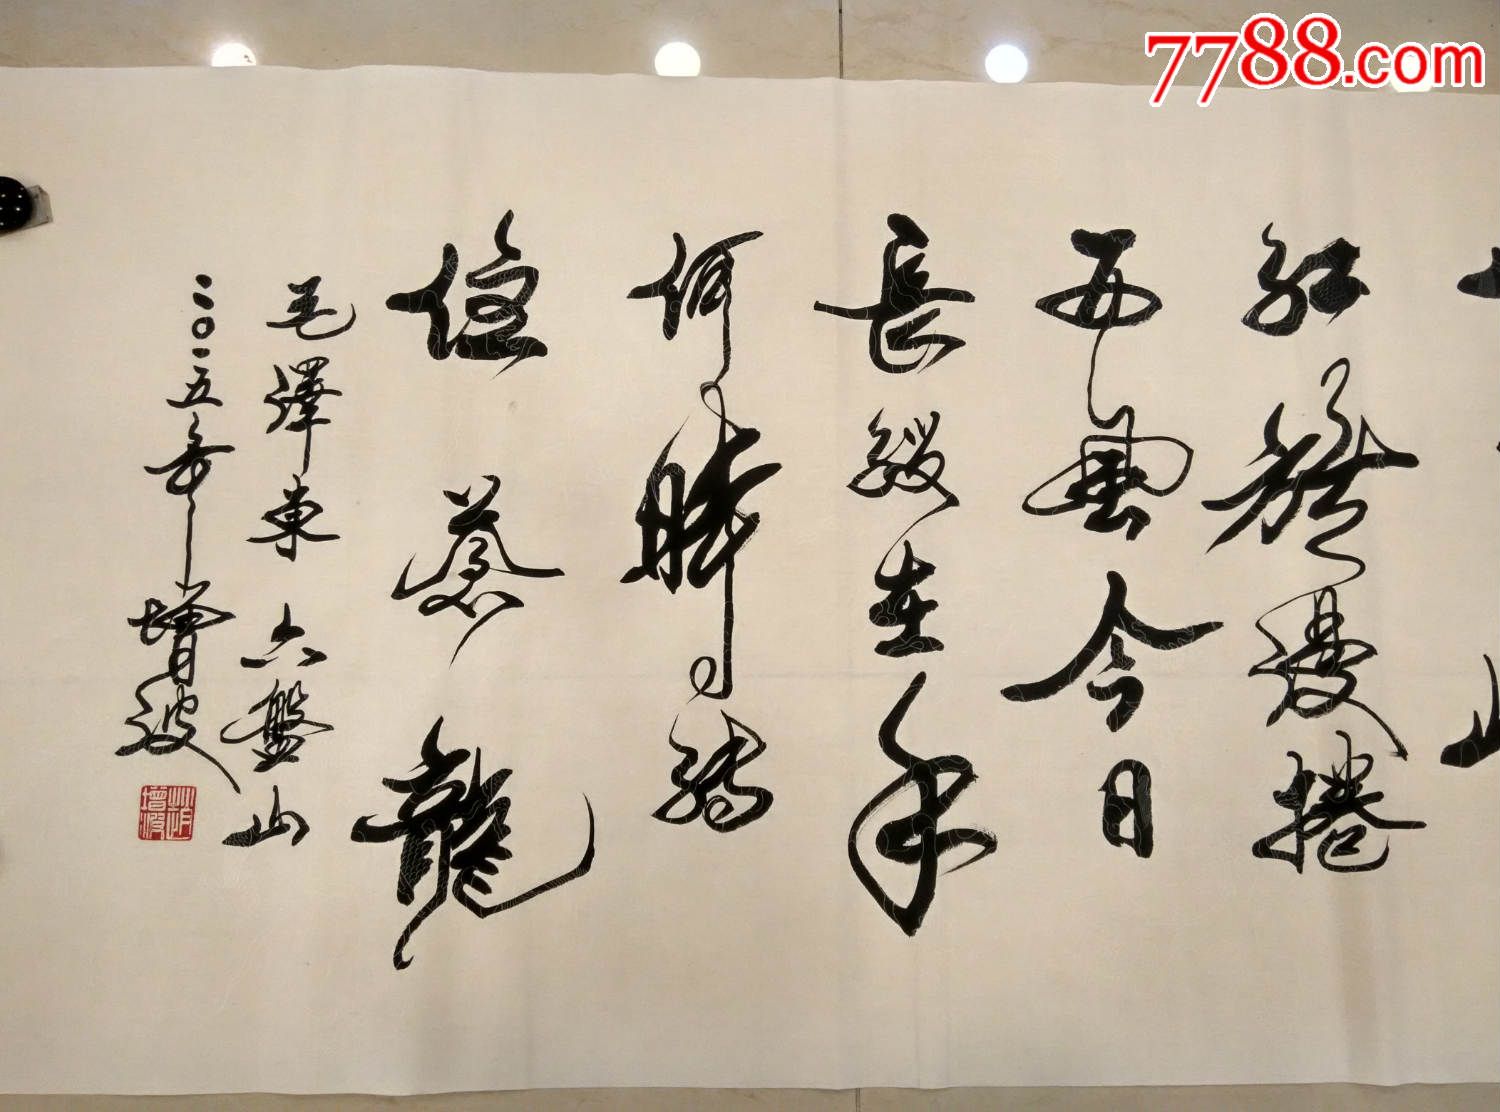 7788.com
红旗漫捲
西風今日
長缨在手
何時缚
住蒼龍
毛澤東 六盤山
二〇一五年 增波
趙增波